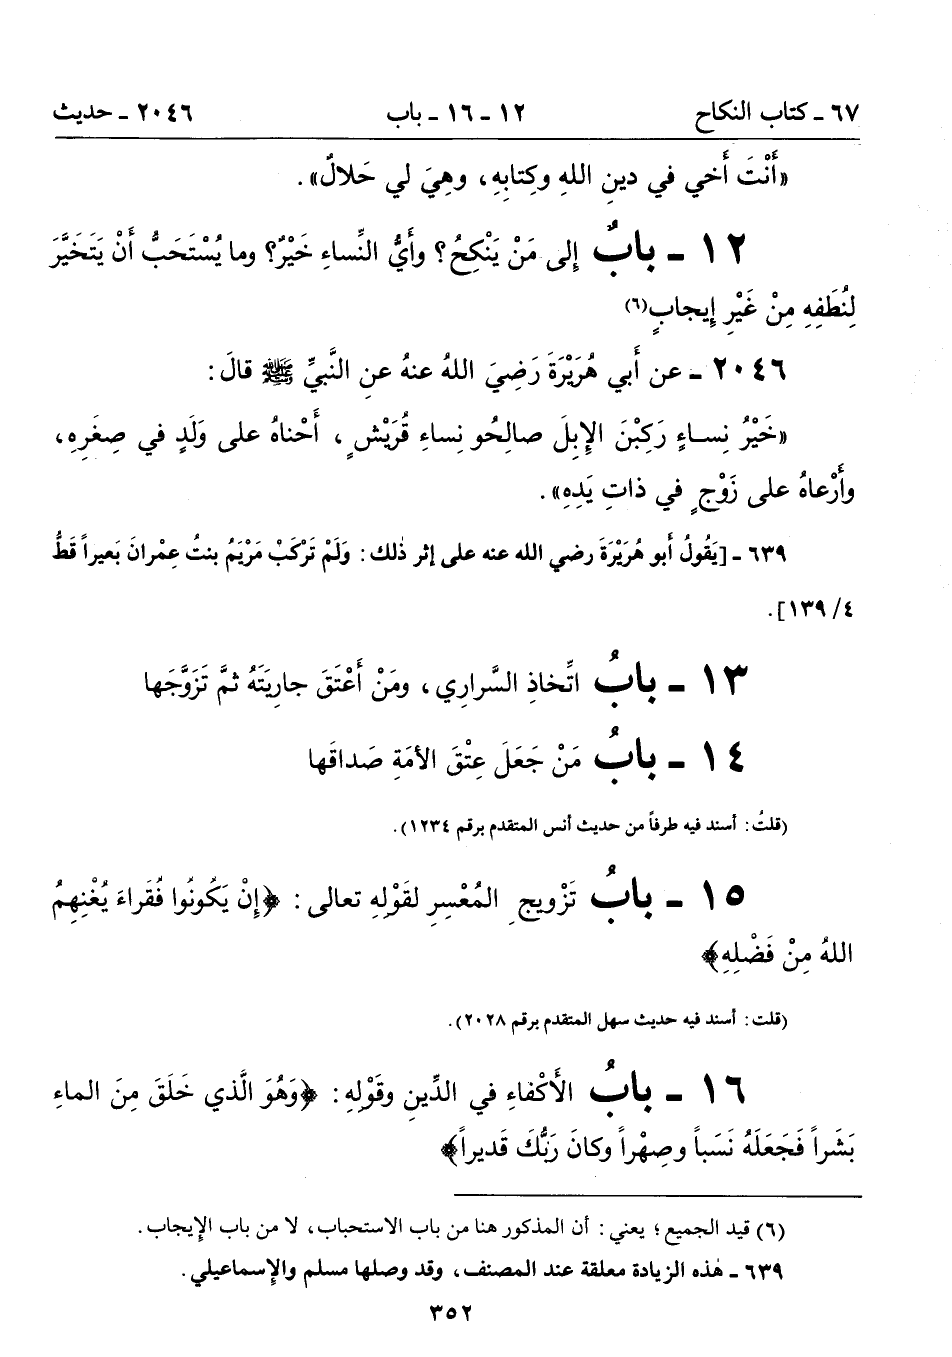 ٦٧ ـ كتاب النكاح ١٢ ـ ١٦ ـ باب ٢٠٤٦ ـ حديث
«أَنْتَ أَخي في دينِ اللهِ وكِتابِهِ، وهِيَ لي حَلالٌ».
١٢ ـ بابٌ إلى مَنْ يَنْكِحُ؟ وأَيُّ النِّساءِ خَيْرٌ؟ وما يُسْتَحَبُّ أَنْ يَتَخَيَّرَ
لِنُطَفِهِ مِنْ غَيْرِ إيجابٍ(٦)
٢٠٤٦ ـ عن أَبي هُرَيْرَةَ رَضِيَ اللهُ عنهُ عنِ النَّبيِّ ﷺ قالَ:
«خَيْرُ نِساءٍ رَكِبْنَ الإِبِلَ صالِحُو نِساءِ قُرَيْشٍ، أَحْناهُ على وَلَدٍ في صِغَرِهِ،
وأَرْعاهُ على زَوْجٍ في ذاتِ يَدِهِ».
٦٣٩ ـ [يَقُولُ أَبو هُرَيْرَةَ رضي الله عنه على إثر ذٰلك: وَلَمْ تَرْكَبْ مَرْيَمُ بنتُ عِمْرانَ بَعيراً قَطُّ
٤/ ١٣٩].
١٣ ـ بابُ اتِّخاذِ السَّراري، ومَنْ أَعْتَقَ جارِيَتَهُ ثمَّ تَزَوَّجَها
١٤ ـ بابُ مَنْ جَعَلَ عِتْقَ الأمَةِ صَداقَها
(قلتُ: أسند فيه طرفاً من حديث أنس المتقدم برقم ١٢٣٤).
١٥ ـ بابُ تَزْويجِ المُعْسِرِ لقَوْلِهِ تعالى: ﴿إِنْ يَكُونُوا فُقَراءَ يُغْنِهِمُ
اللهُ مِنْ فَضْلِهِ﴾
(قلت: أسند فيه حديث سهل المتقدم برقم ٢٠٢٨).
١٦ ـ بابُ الأَكْفاءِ في الدِّينِ وقَوْلِهِ: ﴿وَهُوَ الَّذي خَلَقَ مِنَ الماءِ
بَشَراً فَجَعَلَهُ نَسَباً وصِهْراً وكانَ رَبُّكَ قَديراً﴾
(٦) قيد الجميع؛ يعني: أن المذكور هنا من باب الاستحباب، لا من باب الإيجاب.
٦٣٩ ـ هٰذه الزيادة معلقة عند المصنف، وقد وصلها مسلم والإسماعيلي.
٣٥٢